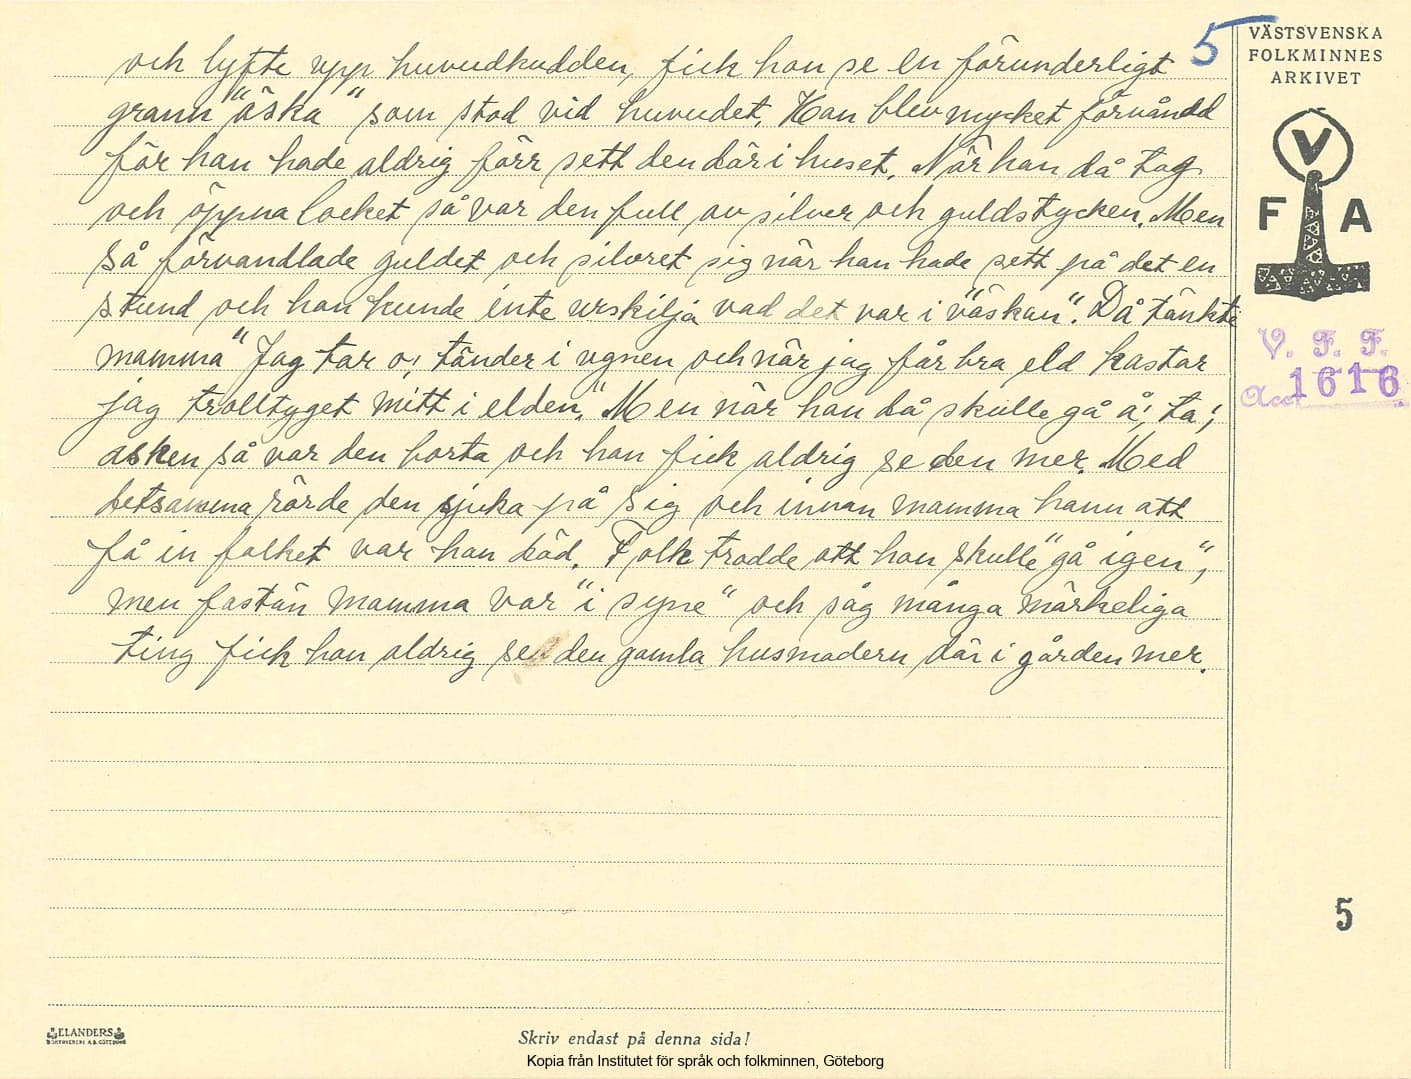 5
VÄSTSVENSKA
FOLKMINNES
ARKIVET
och lyfte upp huvudkudden, fick hon se en förunderligt
grann "äska" som stod vid huvudet. Hon blev mycket förvåndd
för han hade aldrig förr sett den där i huset. När han då tog
och öppna locket så var den full av silver och guldstycken. Men
så förvandlade guldet och silvret sig när han hade sett på det en
stund och han kunde inte urskilja vad det var i "väskan". Då tänkte
mamma "Jag tar o! tänder i ugnen och när jag får bra eld kastar
jag trolltyget mitt i elden." Men när han då skulle gå å! ta!
asken så var den borta och hon fick aldrig se den mer. Med
detsamma rörde den sjuka på sig och innan mamma hann att
få in folket var han död. Folk trodde att hon skulle "gå igen",
men fastän mamma var "i syne" och såg många märkeliga
ting fick hon aldrig se den gamla husmodern där i gården mer.
V
F A
V. F. F.
Acc. 1616
5
ELANDERS
BOKTRYCKERI A.B. GÖTEBORG
Skriv endast på denna sida!
Kopia från Institutet för språk och folkminnen, Göteborg